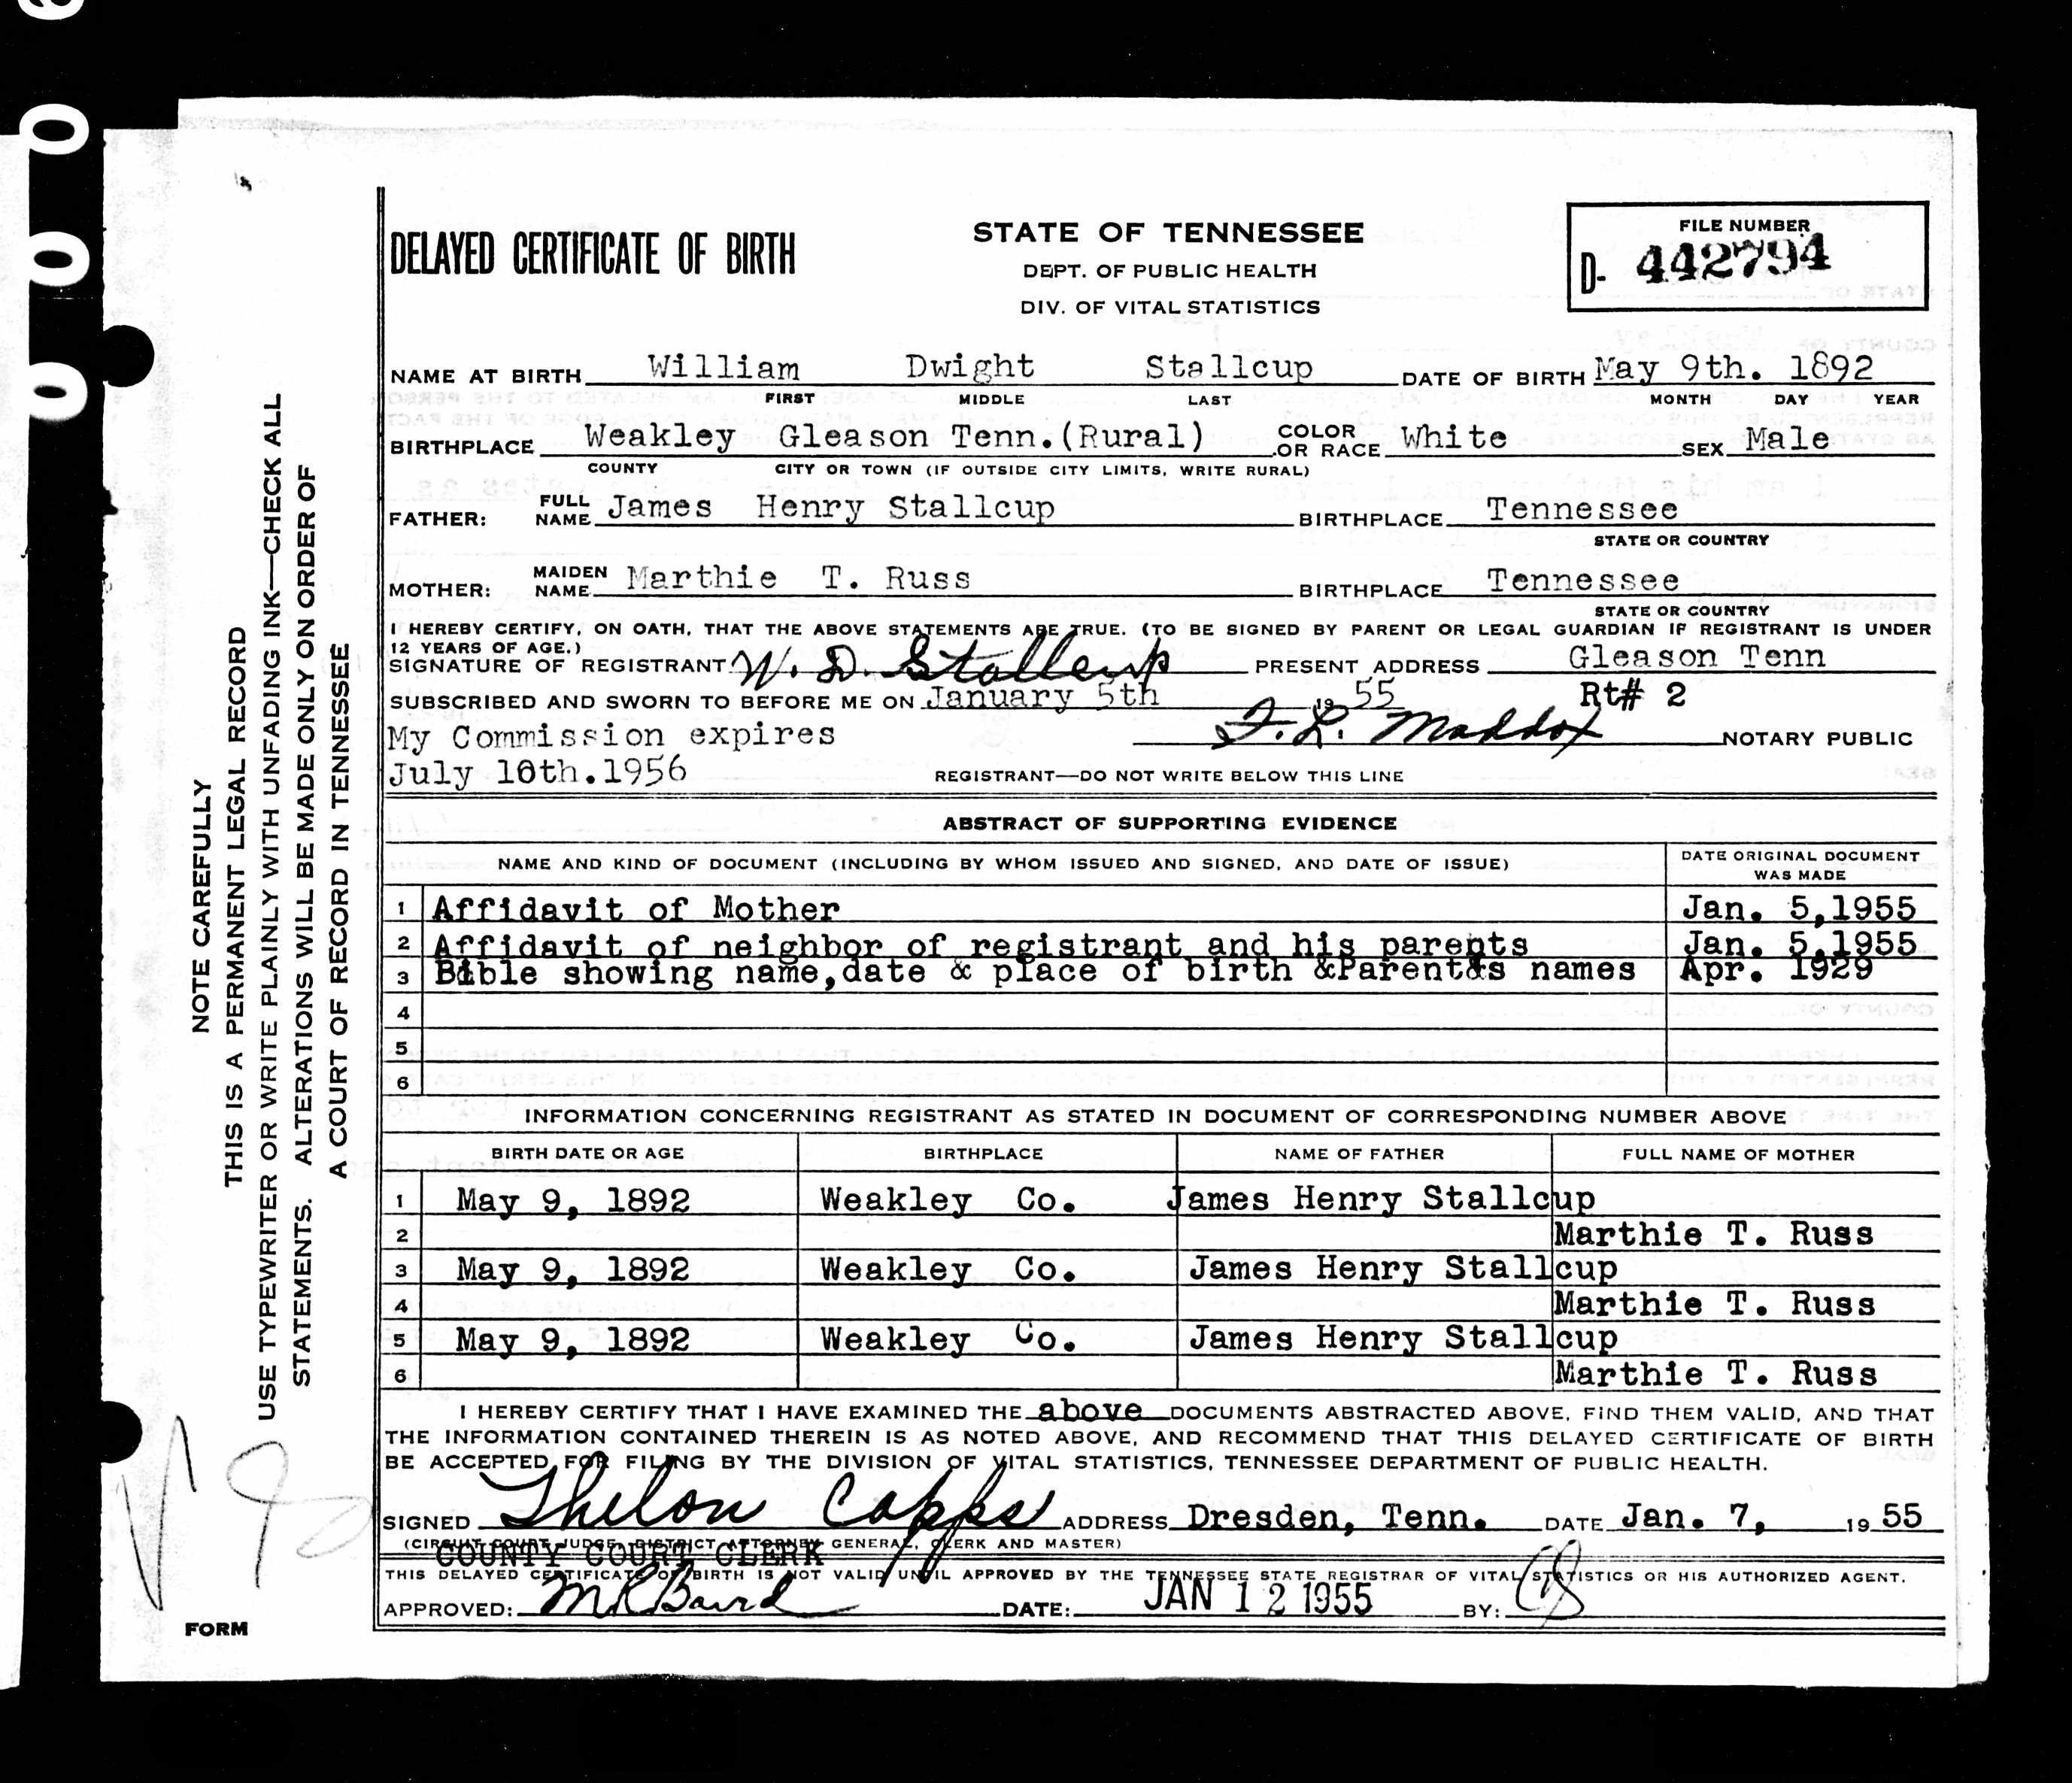 0 0 0 0
NOTE CAREFULLY
THIS IS A PERMANENT LEGAL RECORD
USE TYPEWRITER OR WRITE PLAINLY WITH UNFADING INK—CHECK ALL
STATEMENTS. ALTERATIONS WILL BE MADE ONLY ON ORDER OF
A COURT OF RECORD IN TENNESSEE
DELAYED CERTIFICATE OF BIRTH
STATE OF TENNESSEE
DEPT. OF PUBLIC HEALTH
DIV. OF VITAL STATISTICS
FILE NUMBER
D- 442794
NAME AT BIRTH William Dwight Stallcup DATE OF BIRTH May 9th. 1892
FIRST MIDDLE LAST MONTH DAY YEAR
BIRTHPLACE Weakley Gleason Tenn.(Rural) COLOR OR RACE White SEX Male
COUNTY CITY OR TOWN (IF OUTSIDE CITY LIMITS, WRITE RURAL)
FATHER: FULL NAME James Henry Stallcup BIRTHPLACE Tennessee
STATE OR COUNTRY
MOTHER: MAIDEN NAME Marthie T. Russ BIRTHPLACE Tennessee
STATE OR COUNTRY
I HEREBY CERTIFY, ON OATH, THAT THE ABOVE STATEMENTS ARE TRUE. (TO BE SIGNED BY PARENT OR LEGAL GUARDIAN IF REGISTRANT IS UNDER
12 YEARS OF AGE.)
SIGNATURE OF REGISTRANT W. D. Stallcup PRESENT ADDRESS Gleason Tenn
SUBSCRIBED AND SWORN TO BEFORE ME ON January 5th 19 55 Rt# 2
My Commission expires F. L. Maddox NOTARY PUBLIC
July 10th.1956 REGISTRANT—DO NOT WRITE BELOW THIS LINE
ABSTRACT OF SUPPORTING EVIDENCE
NAME AND KIND OF DOCUMENT (INCLUDING BY WHOM ISSUED AND SIGNED, AND DATE OF ISSUE) DATE ORIGINAL DOCUMENT WAS MADE
1 Affidavit of Mother Jan. 5,1955
2 Affidavit of neighbor of registrant and his parents Jan. 5,1955
3 Bible showing name,date & place of birth &Parents names Apr. 1929
4
5
6
INFORMATION CONCERNING REGISTRANT AS STATED IN DOCUMENT OF CORRESPONDING NUMBER ABOVE
BIRTH DATE OR AGE BIRTHPLACE NAME OF FATHER FULL NAME OF MOTHER
1 May 9, 1892 Weakley Co. James Henry Stallcup
2 Marthie T. Russ
3 May 9, 1892 Weakley Co. James Henry Stallcup
4 Marthie T. Russ
5 May 9, 1892 Weakley Co. James Henry Stallcup
6 Marthie T. Russ
I HEREBY CERTIFY THAT I HAVE EXAMINED THE above DOCUMENTS ABSTRACTED ABOVE, FIND THEM VALID, AND THAT
THE INFORMATION CONTAINED THEREIN IS AS NOTED ABOVE, AND RECOMMEND THAT THIS DELAYED CERTIFICATE OF BIRTH
BE ACCEPTED FOR FILING BY THE DIVISION OF VITAL STATISTICS, TENNESSEE DEPARTMENT OF PUBLIC HEALTH.
SIGNED Thelon Capps ADDRESS Dresden, Tenn. DATE Jan. 7, 19 55
(CIRCUIT COURT JUDGE, DISTRICT ATTORNEY GENERAL, CLERK AND MASTER)
COUNTY COURT CLERK
THIS DELAYED CERTIFICATE OF BIRTH IS NOT VALID UNTIL APPROVED BY THE TENNESSEE STATE REGISTRAR OF VITAL STATISTICS OR HIS AUTHORIZED AGENT.
APPROVED: M R Baird DATE: JAN 12 1955 BY:
FORM